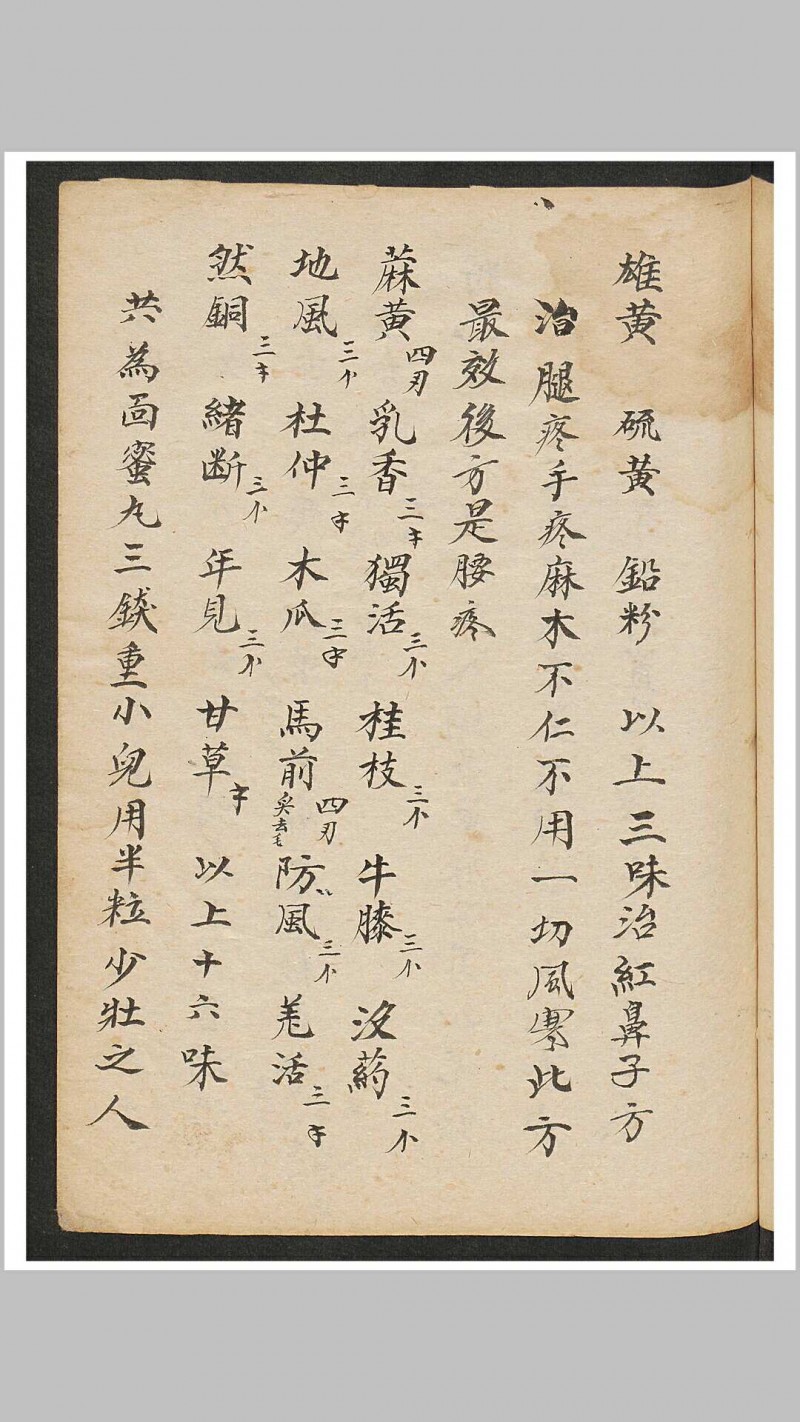 雄黄 硫黄 鉛粉 以上三味治紅鼻子方
治腿疼手疼麻木不仁不用一切風寒此方
最效後方是腰疼
蔴黄四刃 乳香三 獨活三 桂枝三 牛膝三 沒葯三
地風三 杜仲三 木瓜三 馬前四刃炙去毛 防風三 羌活三
然銅三 緒断三 年見三 甘草 以上十六味
共為面蜜丸三錢重小兒用半粒少壯之人